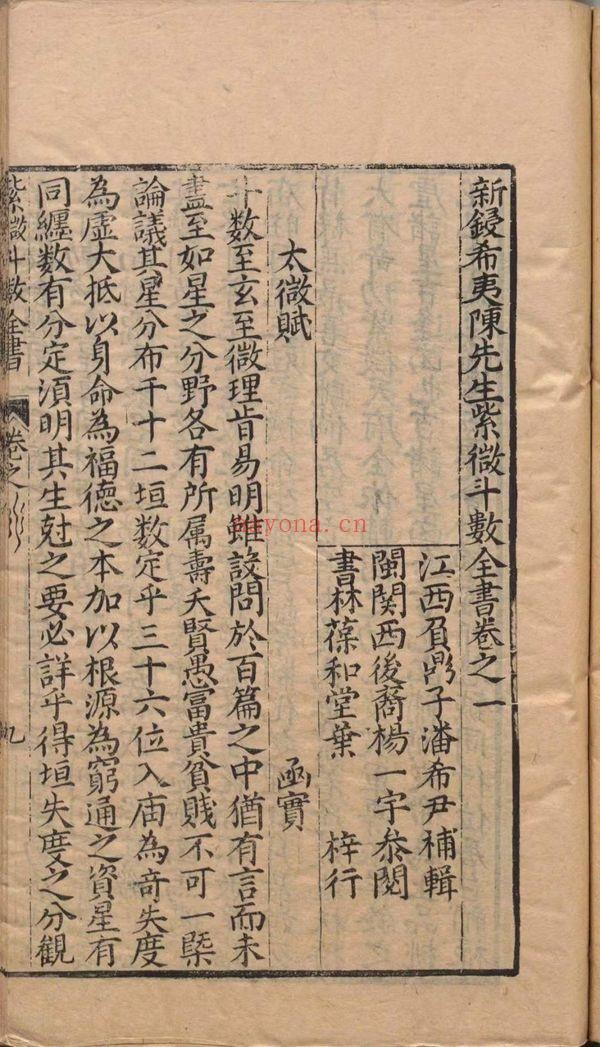 新鋟希夷陳先生紫微斗數全書卷之一
江西負鼎子潘希尹補輯
閩関西後裔楊一宇叅閱
書林葆和堂葉 梓行
太微賦 函實
斗数至玄至微理肯易明雖設問於百篇之中猶有言而未
盡至如星之分野各有所属壽夭賢愚富貴貧賤不可一槩
論議其星分布千十二垣数定乎三十六位入庙為奇失度
為虛大抵以身命為福德之本加以根源為窮通之資星有
同纏数有分定湏明其生尅之要必詳乎得垣失度之分觀
紫微斗數全書 卷之
nayona.cn